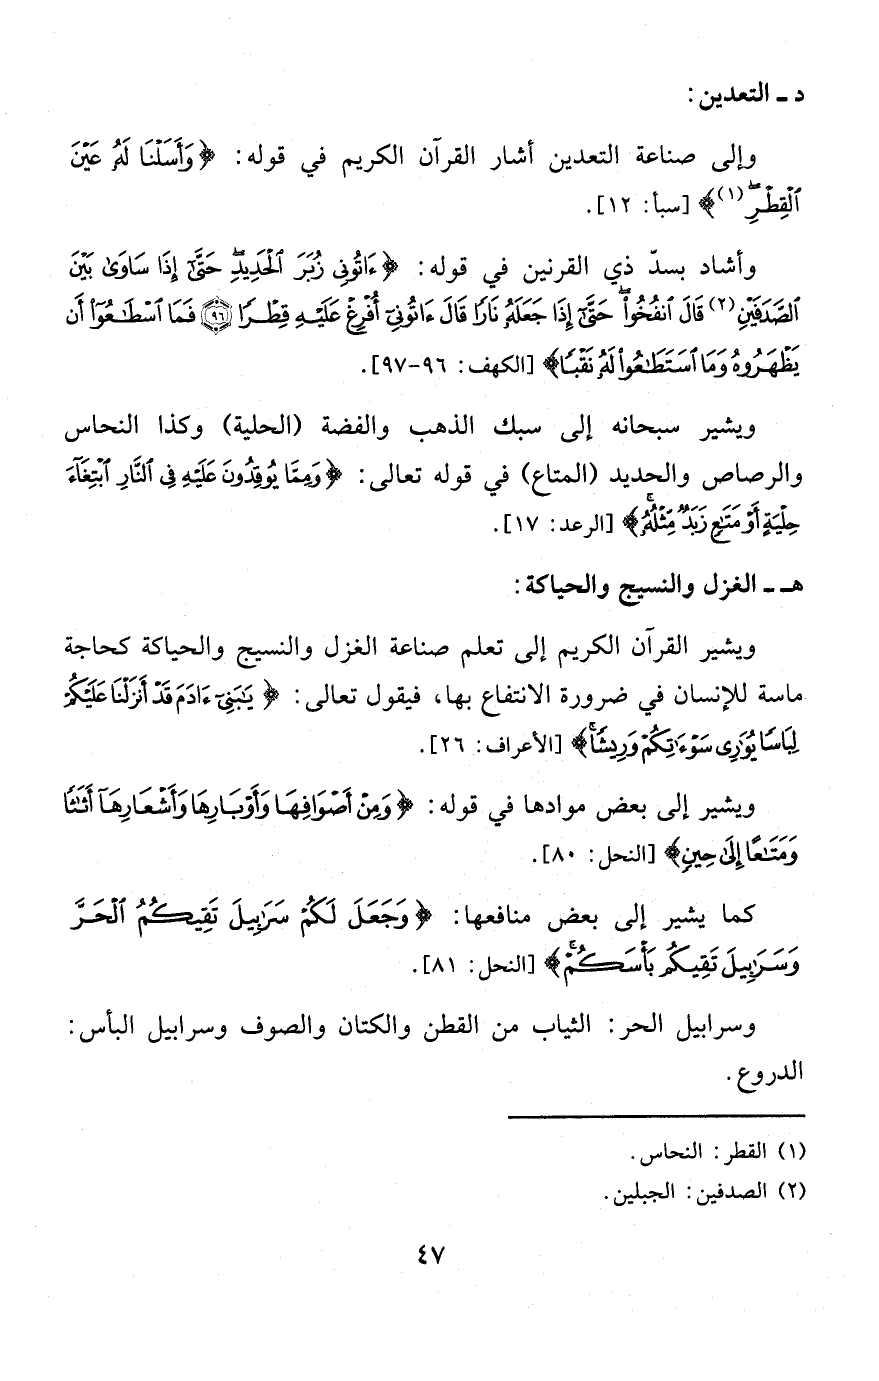 د ـ التعدين :
وإلى صناعة التعدين أشار القرآن الكريم في قوله: ﴿وَأَسَلْنَا لَهُۥ عَيْنَ
ٱلْقِطْرِۖ(١)﴾ [سبأ: ١٢].
وأشاد بسدّ ذي القرنين في قوله: ﴿ءَاتُونِى زُبَرَ ٱلْحَدِيدِۖ حَتَّىٰٓ إِذَا سَاوَىٰ بَيْنَ
ٱلصَّدَفَيْنِ(٢) قَالَ ٱنفُخُواْۖ حَتَّىٰٓ إِذَا جَعَلَهُۥ نَارًا قَالَ ءَاتُونِىٓ أُفْرِغْ عَلَيْهِ قِطْرًا ٩٦ فَمَا ٱسْطَٰعُوٓاْ أَن
يَظْهَرُوهُ وَمَا ٱسْتَطَٰعُواْ لَهُۥ نَقْبًا﴾ [الكهف: ٩٦-٩٧].
ويشير سبحانه إلى سبك الذهب والفضة (الحلية) وكذا النحاس
والرصاص والحديد (المتاع) في قوله تعالى: ﴿وَمِمَّا يُوقِدُونَ عَلَيْهِ فِى ٱلنَّارِ ٱبْتِغَآءَ
حِلْيَةٍ أَوْ مَتَٰعٍ زَبَدٌ مِّثْلُهُۥۚ﴾ [الرعد: ١٧].
هـ ـ الغزل والنسيج والحياكة :
ويشير القرآن الكريم إلى تعلم صناعة الغزل والنسيج والحياكة كحاجة
ماسة للإنسان في ضرورة الانتفاع بها، فيقول تعالى: ﴿يَٰبَنِىٓ ءَادَمَ قَدْ أَنزَلْنَا عَلَيْكُمْ
لِبَاسًا يُوَٰرِى سَوْءَٰتِكُمْ وَرِيشًاۚ﴾ [الأعراف: ٢٦].
ويشير إلى بعض موادها في قوله: ﴿وَمِنْ أَصْوَافِهَا وَأَوْبَارِهَا وَأَشْعَارِهَآ أَثَٰثًا
وَمَتَٰعًا إِلَىٰ حِينٍ﴾ [النحل: ٨٠].
كما يشير إلى بعض منافعها: ﴿وَجَعَلَ لَكُمْ سَرَٰبِيلَ تَقِيكُمُ ٱلْحَرَّ
وَسَرَٰبِيلَ تَقِيكُم بَأْسَكُمْۚ﴾ [النحل: ٨١].
وسرابيل الحر: الثياب من القطن والكتان والصوف وسرابيل البأس:
الدروع.
(١) القطر: النحاس.
(٢) الصدفين: الجبلين.
٤٧